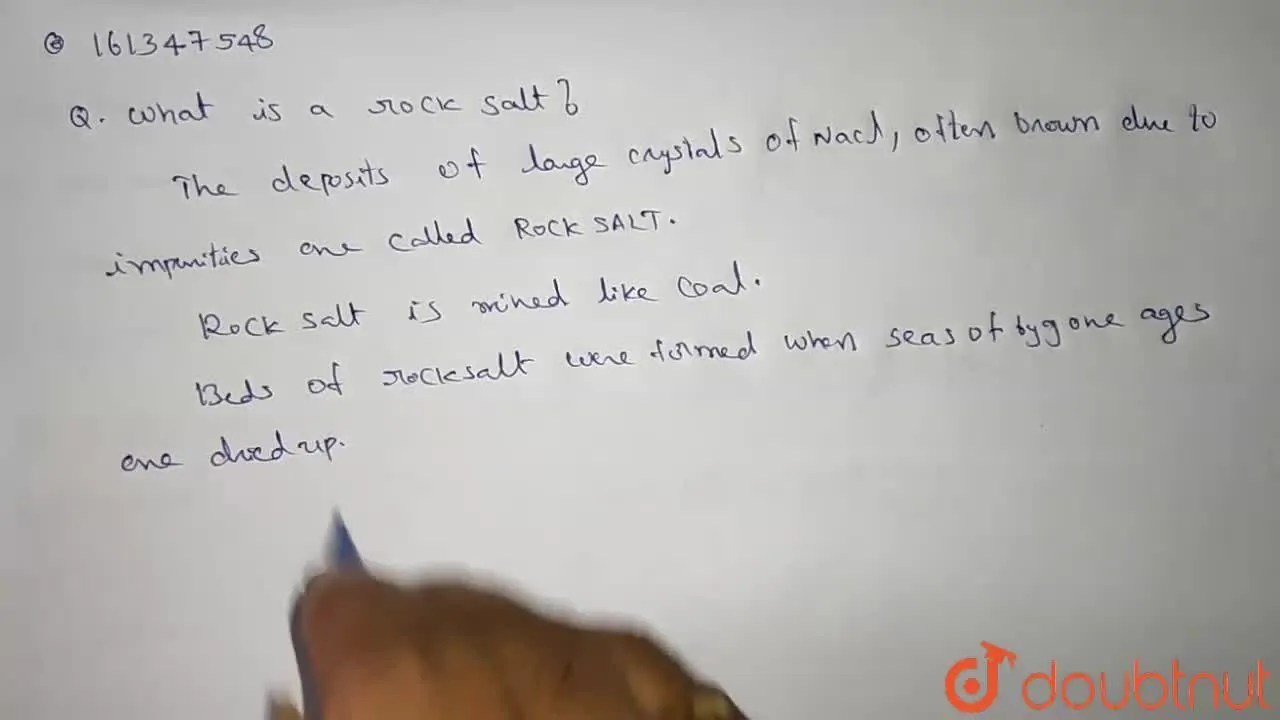 161347548
Q. What is a rock salt?
The deposits of large crystals of NaCl, often brown due to
impurities are called ROCK SALT.
Rock salt is mined like coal.
Beds of rocksalt were formed when seas of bygone ages
are dried up.
doubtnut